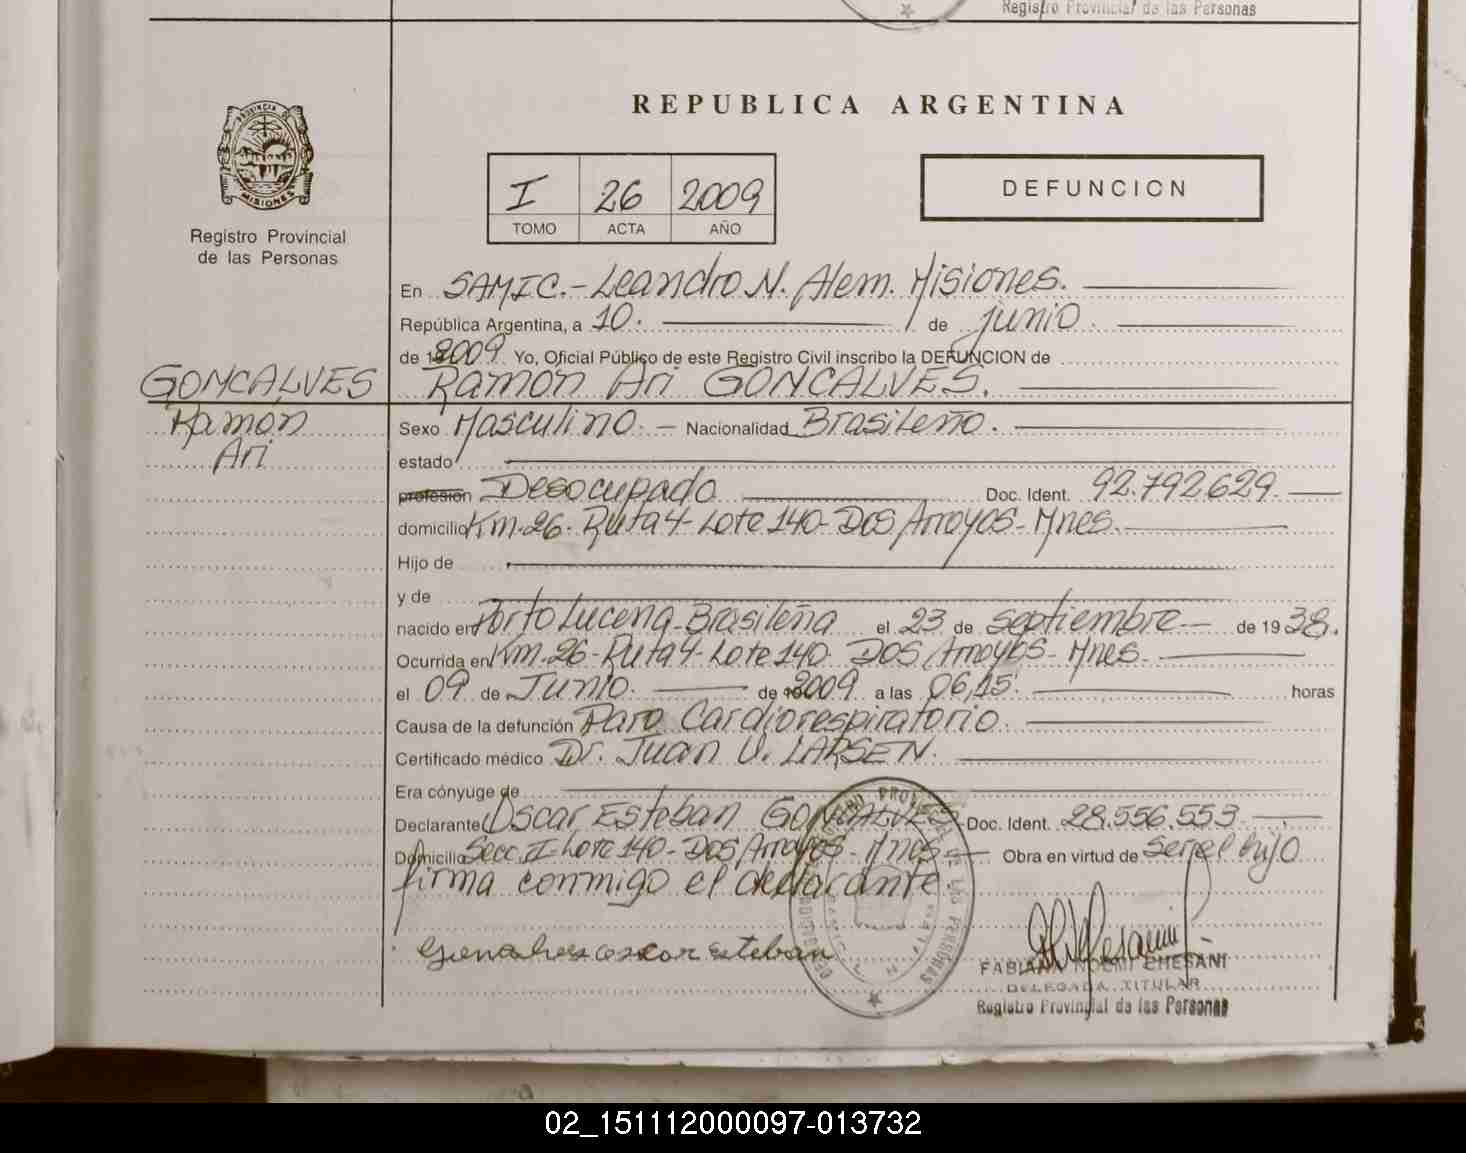 Registro Provincial de las Personas
REPUBLICA ARGENTINA
PROVINCIA DE
MISIONES
Registro Provincial
de las Personas
I 26 2009
TOMO ACTA AÑO
DEFUNCION
En SAMIC.- Leandro N. Alem. Misiones.
República Argentina, a 10. de junio.
de 2009 Yo, Oficial Público de este Registro Civil inscribo la DEFUNCION de
GONCALVES
Ramón Ari GONCALVES.
Ramón
Ari
Sexo Masculino. - Nacionalidad Brasileño.
estado
profesión Desocupado Doc. Ident. 92.792.629.
domicilio Km.26- Ruta 4- Lote 140- Dos Arroyos- Mnes.
Hijo de
y de
nacido en Porto Lucena- Brasileña el 23 de septiembre de 1938.
Ocurrida en Km.26-Ruta 4- Lote 140- Dos Arroyos- Mnes.
el 09 de Junio. de 2009 a las 06,15. horas
Causa de la defunción Paro Cardiorespiratorio.
Certificado médico Dr. Juan U. LARSEN.
Era cónyuge de
Declarante Oscar Esteban GONCALVES Doc. Ident. 28.556.553
Domicilio Secc. I- Lote 140- Dos Arroyos- Mnes Obra en virtud de ser el hijo
firma conmigo el declarante
Goncalves oscar esteban
FABIANA NOEMI CHESANI
DELEGADA TITULAR
Registro Provincial de las Personas
02_151112000097-013732